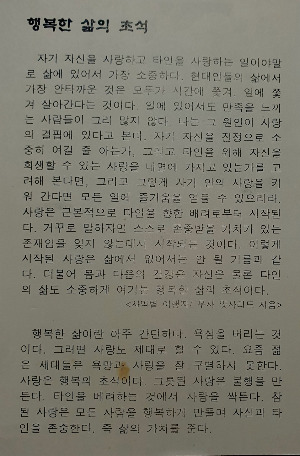 행복한 삶의 초석
자기 자신을 사랑하고 타인을 사랑하는 일이야말
로 삶에 있어서 가장 소중하다. 현대인들의 삶에서
가장 안타까운 것은 모두가 시간에 쫓겨, 일에 쫓
겨 살아간다는 것이다. 일에 있어서도 만족을 느끼
는 사람들이 그리 많지 않다. 나는 그 원인이 사랑
의 결핍에 있다고 본다. 자기 자신을 진정으로 소
중히 여길 줄 아는가, 그리고 타인을 위해 자신을
희생할 수 있는 사랑을 내면에 가지고 있는가를 고
려해 본다면, 그리고 그렇게 자기 안의 사랑을 키
워 간다면 모든 일에 즐거움을 얻을 수 있으리라.
사랑은 근본적으로 타인을 향한 배려로부터 시작된
다. 거꾸로 말하자면 스스로 존중받을 가치가 있는
존재임을 잊지 않는데서 시작되는 것이다. 이렇게
시작된 사랑은 삶에서 있어서는 안 될 기름과 같
다. 더불어 몸과 마음의 건강은 자신은 물론 타인
의 삶도 소중하게 여기는 행복한 삶의 초석이다.
행복한 삶이란 아주 간단하다. 욕심을 버리는 것
이다. 그러면 사랑도 제대로 할 수 있다. 요즘 젊
은 세대들은 욕망과 사랑을 잘 구별하지 못한다.
사랑은 행복의 초석이다. 그릇된 사랑은 불행을 만
든다. 타인을 배려하는 것에서 사랑을 싹튼다. 참
된 사랑은 모든 사람을 행복하게 만들며 자신과 타
인을 존중한다. 즉 삶의 가치를 준다.